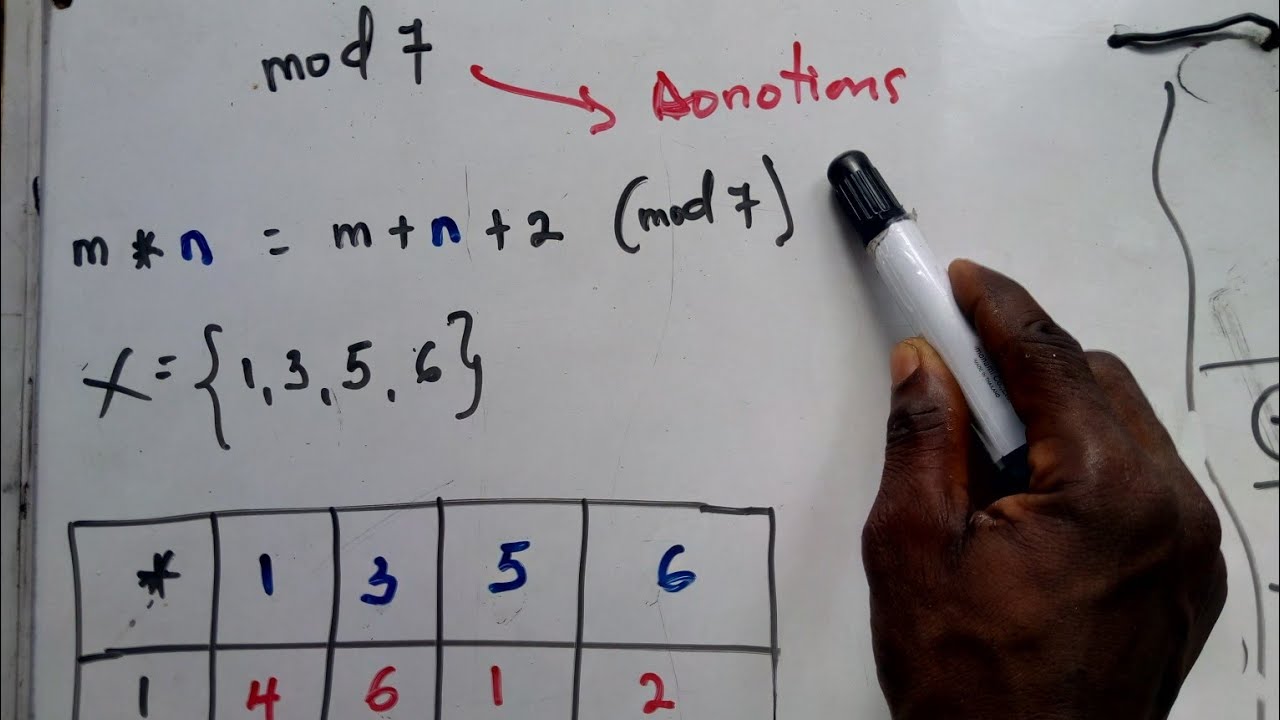 mod 7
Donotions
m * n = m + n + 2 (mod 7)
X = {1, 3, 5, 6}
* 1 3 5 6
1 4 6 1 2